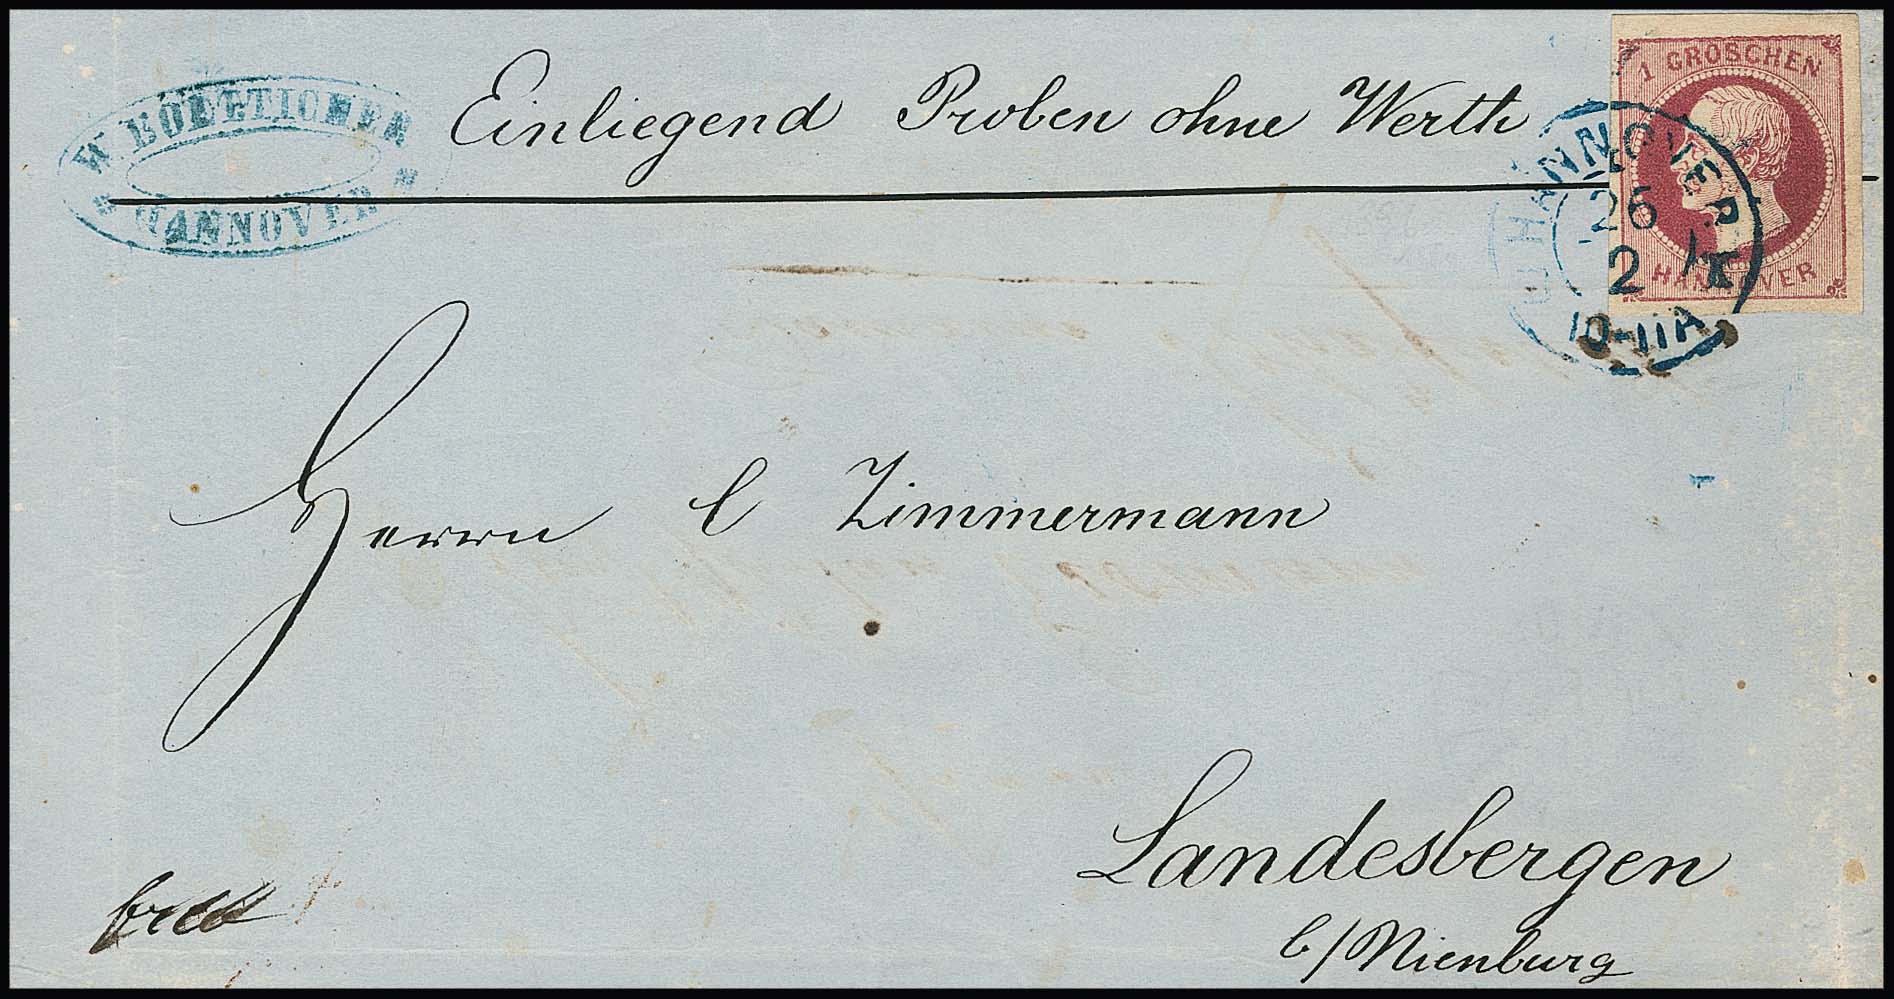 W. BOELTICHER
HANNOVER
Einliegend Proben ohne Werth
1 GROSCHEN
HANNOVER
HANNOVER
26
2
10-11A
Herrn C Zimmermann
Landesbergen
b/Nienburg